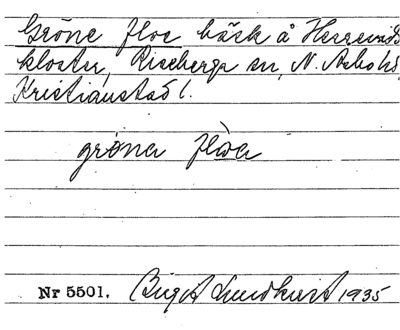 Gröne floe bäck å Herrevads
kloster, Riseberga sn, N. Åsbo hd,
Kristianstad l.
gröna flòa
Nr 5501. Birgit Lundkvist 1935